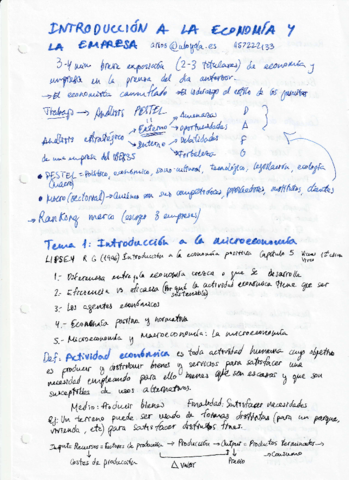 INTRODUCCIÓN A LA ECONOMÍA Y
LA EMPRESA
3-4 min breve exposición (2-3 titulares) de economía y
empresa en la prensa del día anterior.
→ El economista camuflado →
Trabajo → Análisis PESTEL
Análisis estratégico Externo Amenazas D
Oportunidades A
Interno Debilidades F
de una empresa del Fortaleza O
• PESTEL = Político, económico, socio-cultural, Tecnológico, legislación, ecología
(Macro)
• Micro (sectorial) → Quiénes son sus competidores, proveedores, sustitutos, clientes
→ Ranking merca (escoger 3 empresas)
Tema 1: Introducción a la microeconomía
LIPSEY R G Introducción a la economía positiva Capítulo 5
1.- Diferencia entre la economía crezca o que se desarrolla
2.- Eficiencia vs eficacia (Por qué la actividad económica tiene que ser
sostenible)
3.- Los agentes económicos
4.- Economía positiva y normativa
5.- Microeconomía y Macroeconomía: La microeconomía
Def: Actividad económica es toda actividad humana cuyo objetivo
es producir y distribuir bienes y servicios para satisfacer una
necesidad empleando para ello bienes que son escasos y que son
susceptibles de usos alternativos.
Medio: Producir bienes Finalidad: Satisfacer necesidades
Ej: Un terreno puede ser usado de formas distintas (para un parque,
vivienda, etc) para satisfacer distintos fines.
Inputs Recursos = Factores de producción → Producción → Output = Productos Terminados →
→ Consumo
Costes de producción Δ valor Precio